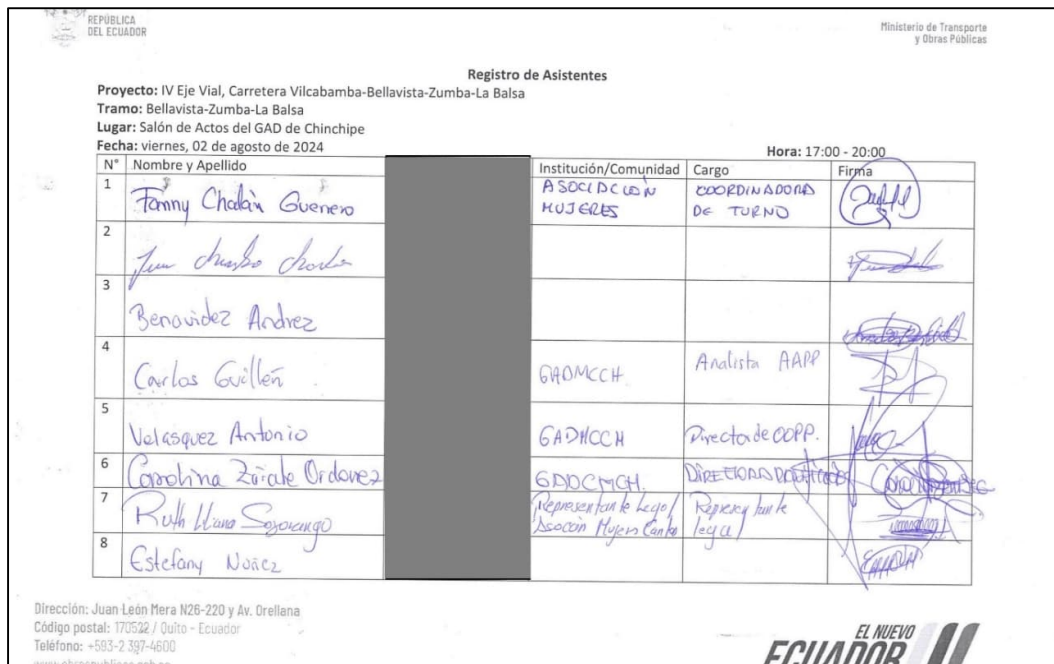 REPÚBLICA
DEL ECUADOR
Ministerio de Transporte
y Obras Públicas
Registro de Asistentes
Proyecto: IV Eje Vial, Carretera Vilcabamba-Bellavista-Zumba-La Balsa
Tramo: Bellavista-Zumba-La Balsa
Lugar: Salón de Actos del GAD de Chinchipe
Fecha: viernes, 02 de agosto de 2024 Hora: 17:00 - 20:00
N° Nombre y Apellido Institución/Comunidad Cargo Firma
1 Fanny Chalán Guerrero ASOCIACIÓN MUJERES COORDINADORA DE TURNO
2
3 Benavidez Andrez
4 Carlos Guillén GADMCCH. Analista AAPP
5 Velasquez Antonio GADMCCH Director de OOPP.
6 Carolina Zárate Ordoñez
7 Ruth Representante Legal Mujeres Representante legal
8 Estefany
Dirección: Juan León Mera N26-220 y Av. Orellana
Código postal: 170522 / Quito - Ecuador
Teléfono: +593-2 397-4600
EL NUEVO
ECUADOR